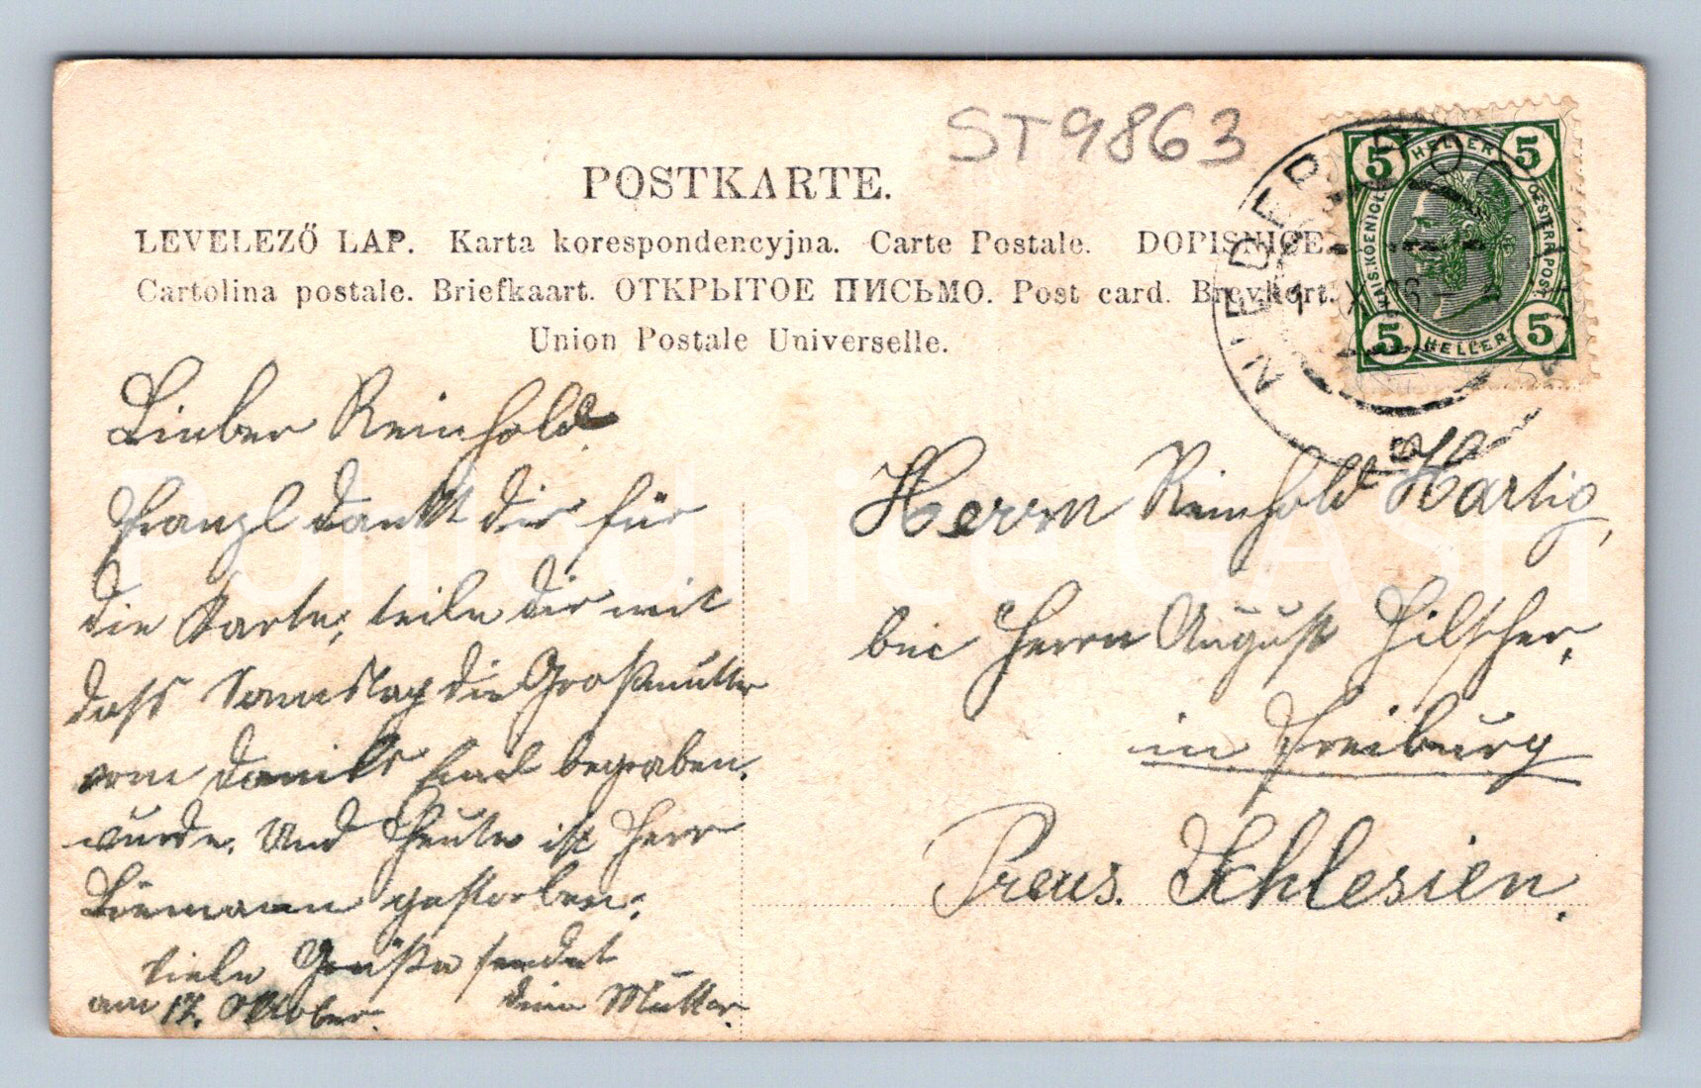 ST9863
POSTKARTE.
LEVELEZŐ LAP. Karta korespondencyjna. Carte Postale. DOPISNICE.
Cartolina postale. Briefkaart. ОТКРЫТОЕ ПИСЬМО. Post card. Brevkort.
Union Postale Universelle.
5 HELLER 5
5 HELLER 5
NIEDER
Lieber Reinhold
Franzl dankt dir für
die Karte, teile dir mit
dass Samstag die Großmutter
vom begraben
wurde. Und Heute ist Herr
gestorben.
Viele Grüße sendet
am 17. Oktober. dein Mutter
Herrn Reinhold Hartig,
bei Herrn August Hilscher,
in Freiburg
Preus. Schlesien.
Pomednice GASH